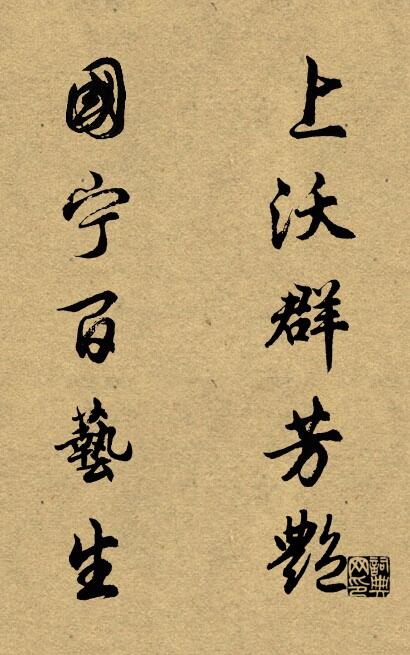 上沃群芳艷
國宁百藝生
詞典
网印